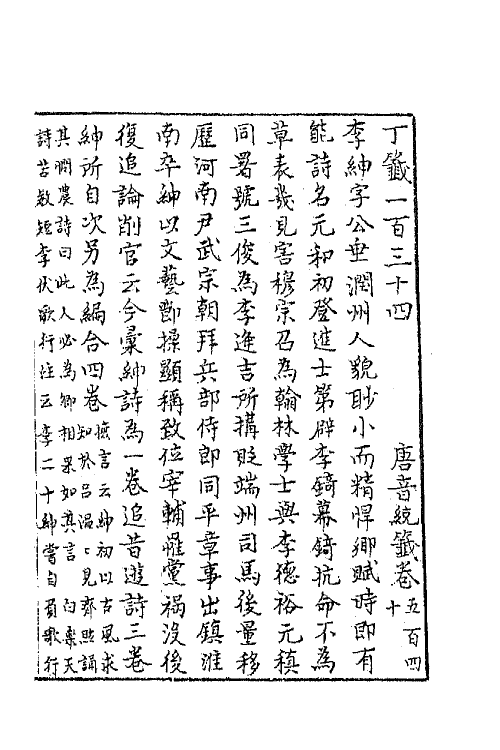 丁籤一百三十四　唐音統籤卷五百四十
李紳字公垂潤州人貌眇小而精悍鄉賦時即有
能詩名元和初登進士第辟李錡幕錡抗命不為
草表幾見害穆宗召為翰林學士與李德裕元稹
同署號三俊為李逢吉所搆貶端州司馬後量移
歷河南尹武宗朝拜兵部侍郎同平章事出鎮淮
南卒紳以文藝節操顯稱致位宰輔罹黨禍沒後
復追論削官云今彙紳詩為一卷追昔遊詩三卷
紳所自次另為編合四卷摭言云紳初以古風求知於呂溫溫見齊煦誦
其憫農詩曰此人必為卿相果如其言　白樂天
詩苦教短李伏歌行注云李二十紳嘗自負歌行